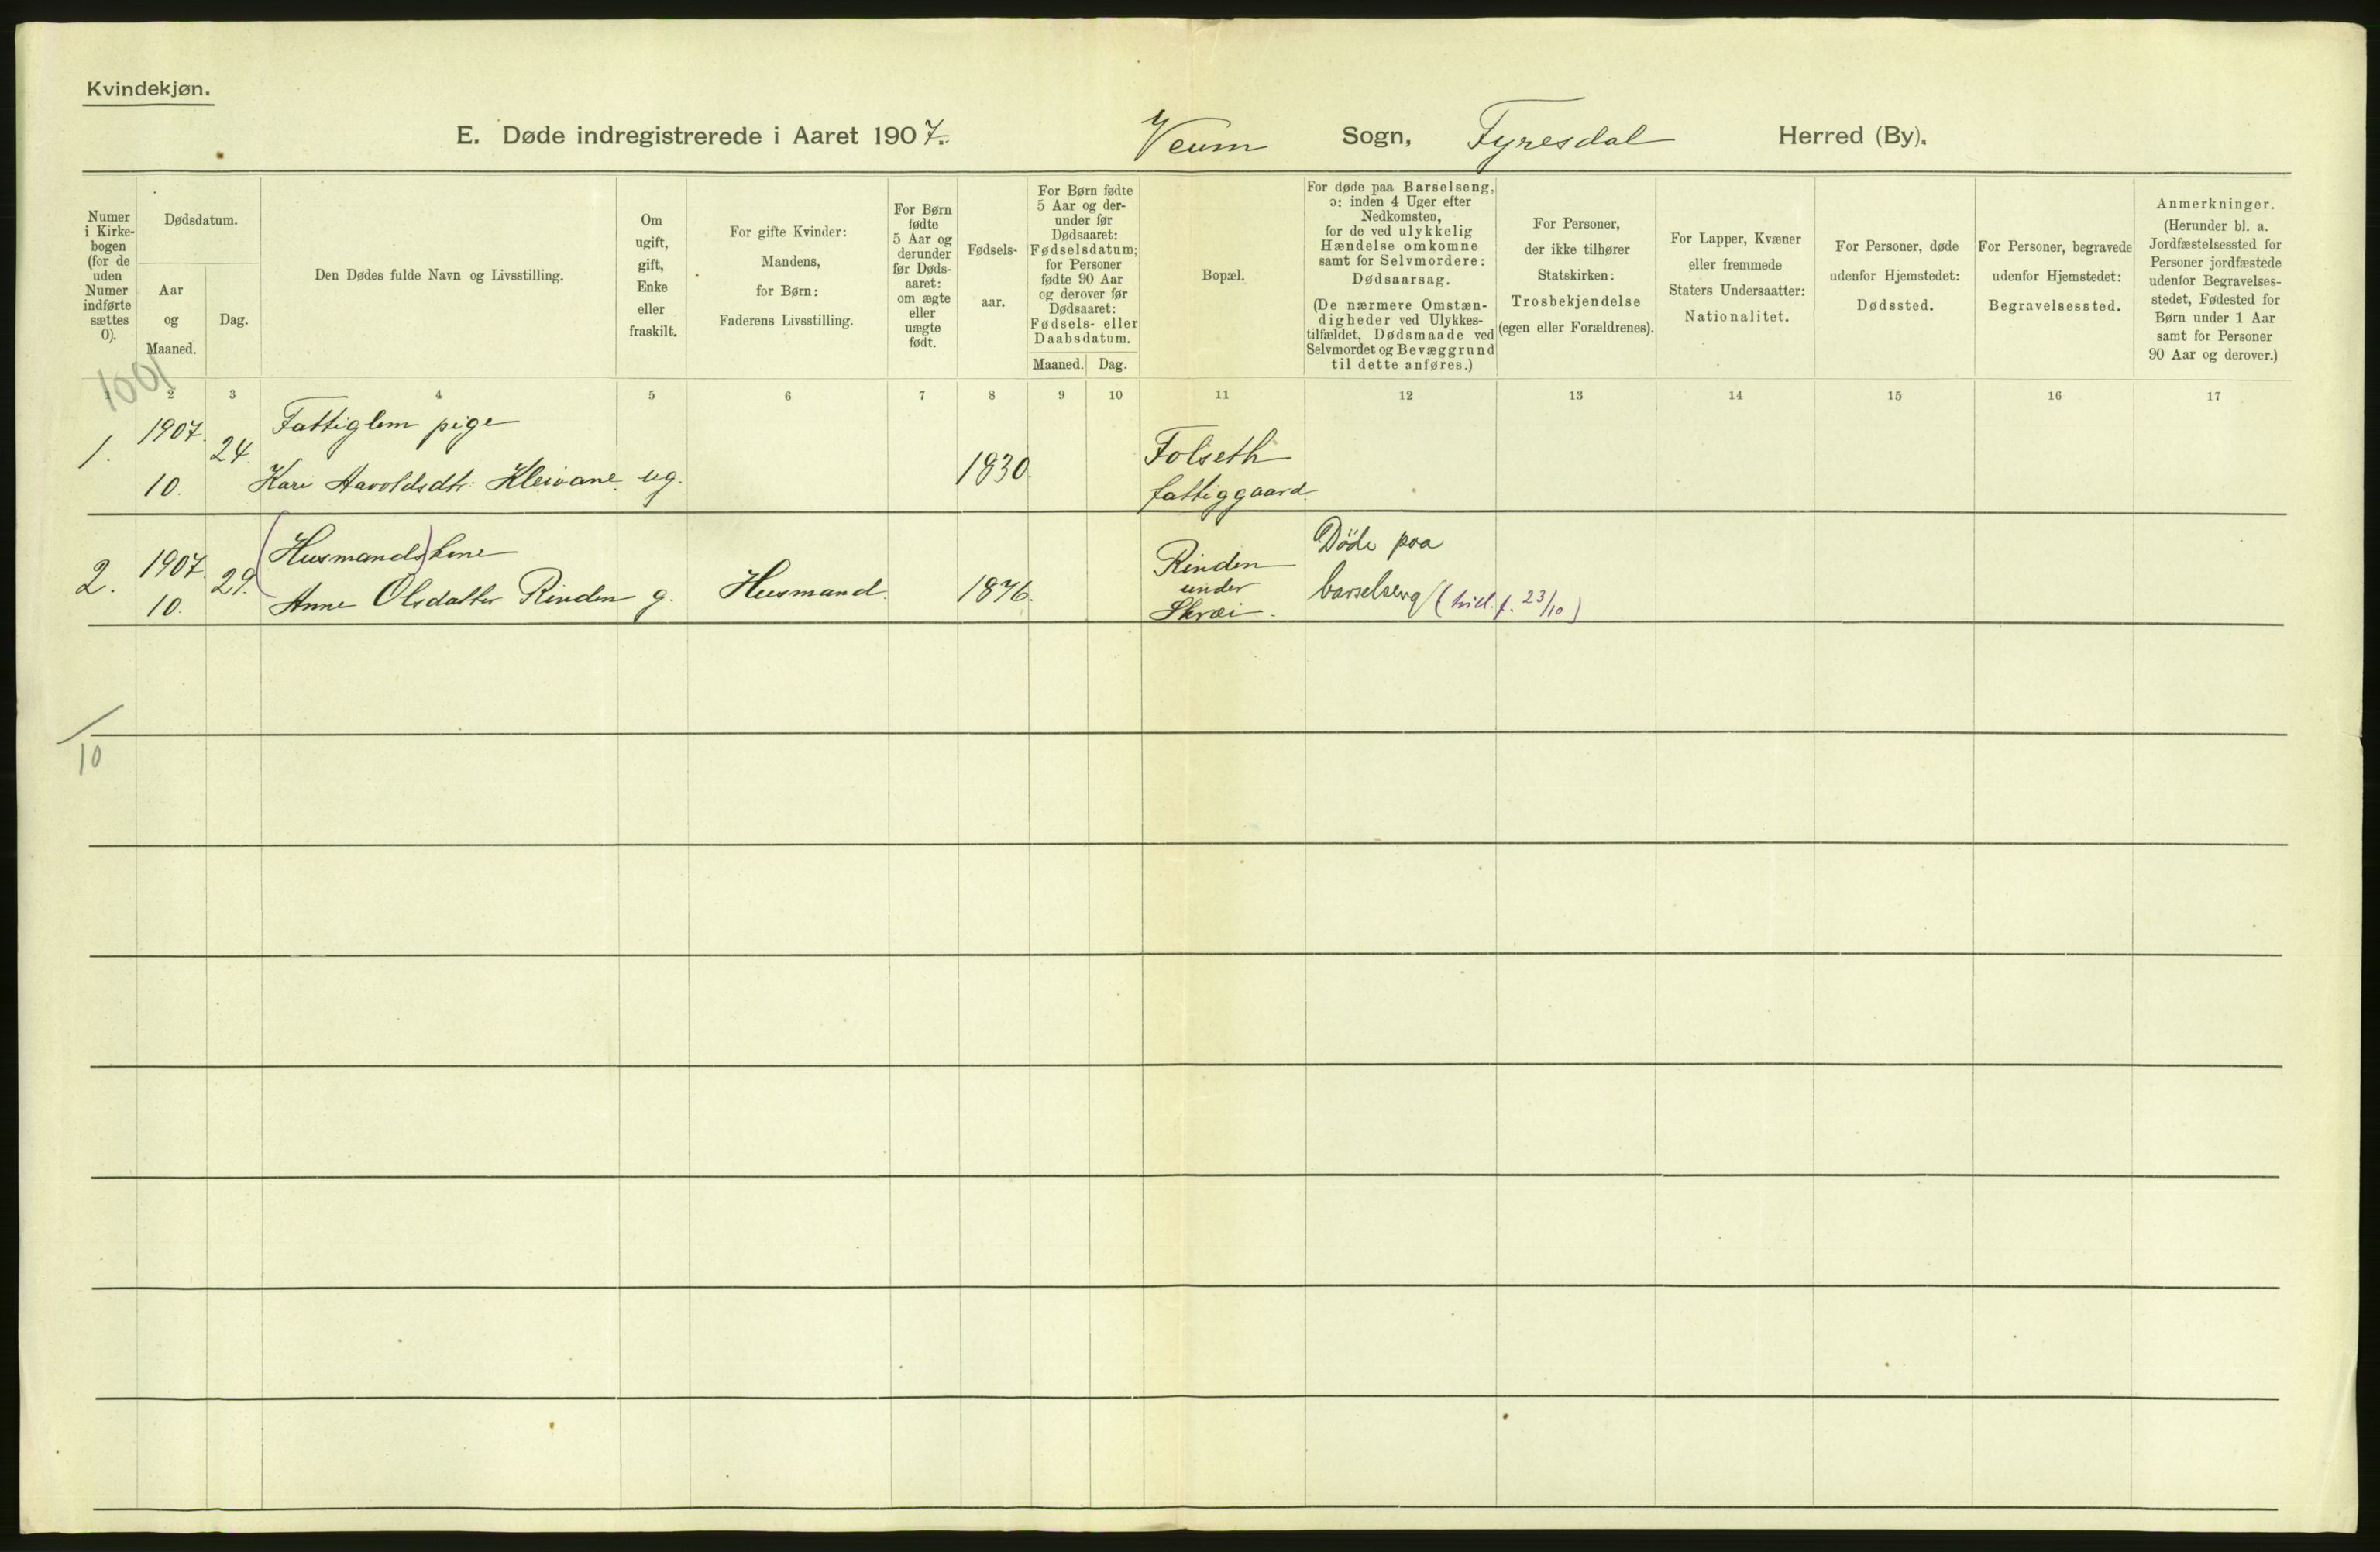 Kvindekjøn.
E. Døde indregistrerede i Aaret 1907. Veum Sogn, Fyresdal Herred (By).
Numer i Kirkebogen (for de uden Numer indførte sættes 0).
Dødsdatum.
Aar og Maaned.
Dag.
Den Dødes fulde Navn og Livsstilling.
Om ugift, gift, Enke eller fraskilt.
For gifte Kvinder: Mandens, for Børn: Faderens Livsstilling.
For Børn fødte 5 Aar og derunder før Dødsaaret: om ægte eller uægte født.
Fødselsaar.
For Børn fødte 5 Aar og derunder før Dødsaaret: Fødselsdatum; for Personer fødte 90 Aar og derover før Dødsaaret: Fødsels- eller Daabsdatum.
Maaned. Dag.
Bopæl.
For døde paa Barselseng, ɔ: inden 4 Uger efter Nedkomsten, for de ved ulykkelig Hændelse omkomne samt for Selvmordere: Dødsaarsag. (De nærmere Omstændigheder ved Ulykkestilfældet, Dødsmaade ved Selvmordet og Bevæggrund til dette anføres.)
For Personer, der ikke tilhører Statskirken: Trosbekjendelse (egen eller Forældrenes).
For Lapper, Kvæner eller fremmede Staters Undersaatter: Nationalitet.
For Personer, døde udenfor Hjemstedet: Dødssted.
For Personer, begravede udenfor Hjemstedet: Begravelsessted.
Anmerkninger. (Herunder bl. a. Jordfæstelsessted for Personer jordfæstede udenfor Begravelsesstedet, Fødested for Børn under 1 Aar samt for Personer 90 Aar og derover.)
1001
1 2 3 4 5 6 7 8 9 10 11 12 13 14 15 16 17
1. 1907. 10. 24. Fattiglem pige
Kari Aavoldsdtr. Kleivane. ug. 1830. Folseth
fattiggaard.
2. 1907. 10. 29. (Husmands)kone
Anne Olsdatter Rinden g. Husmand. 1876. Rinden
under
Skræi.
Döde paa
barselseng (tvill. f. 23/10)
10